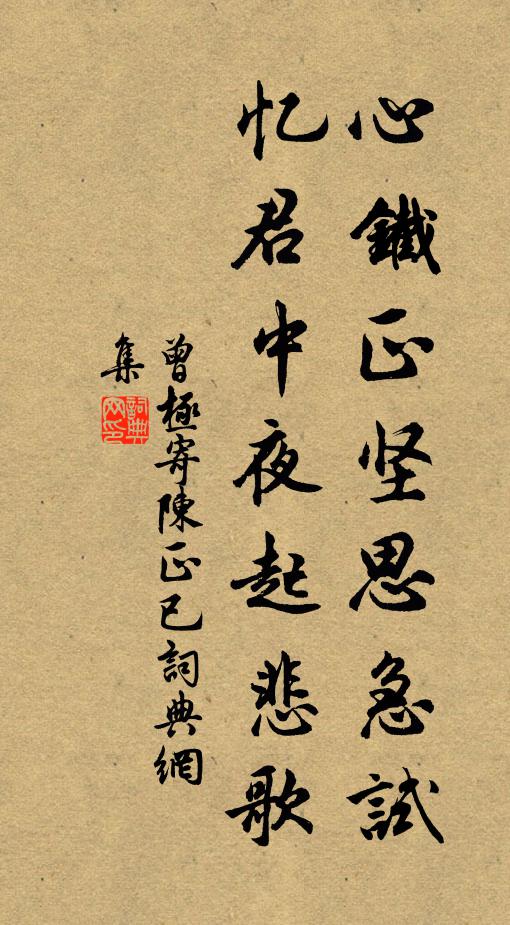 心鐵正坚思急試
忆君中夜起悲歌
曾極寄陳正已詞典網
集
詞典
网印